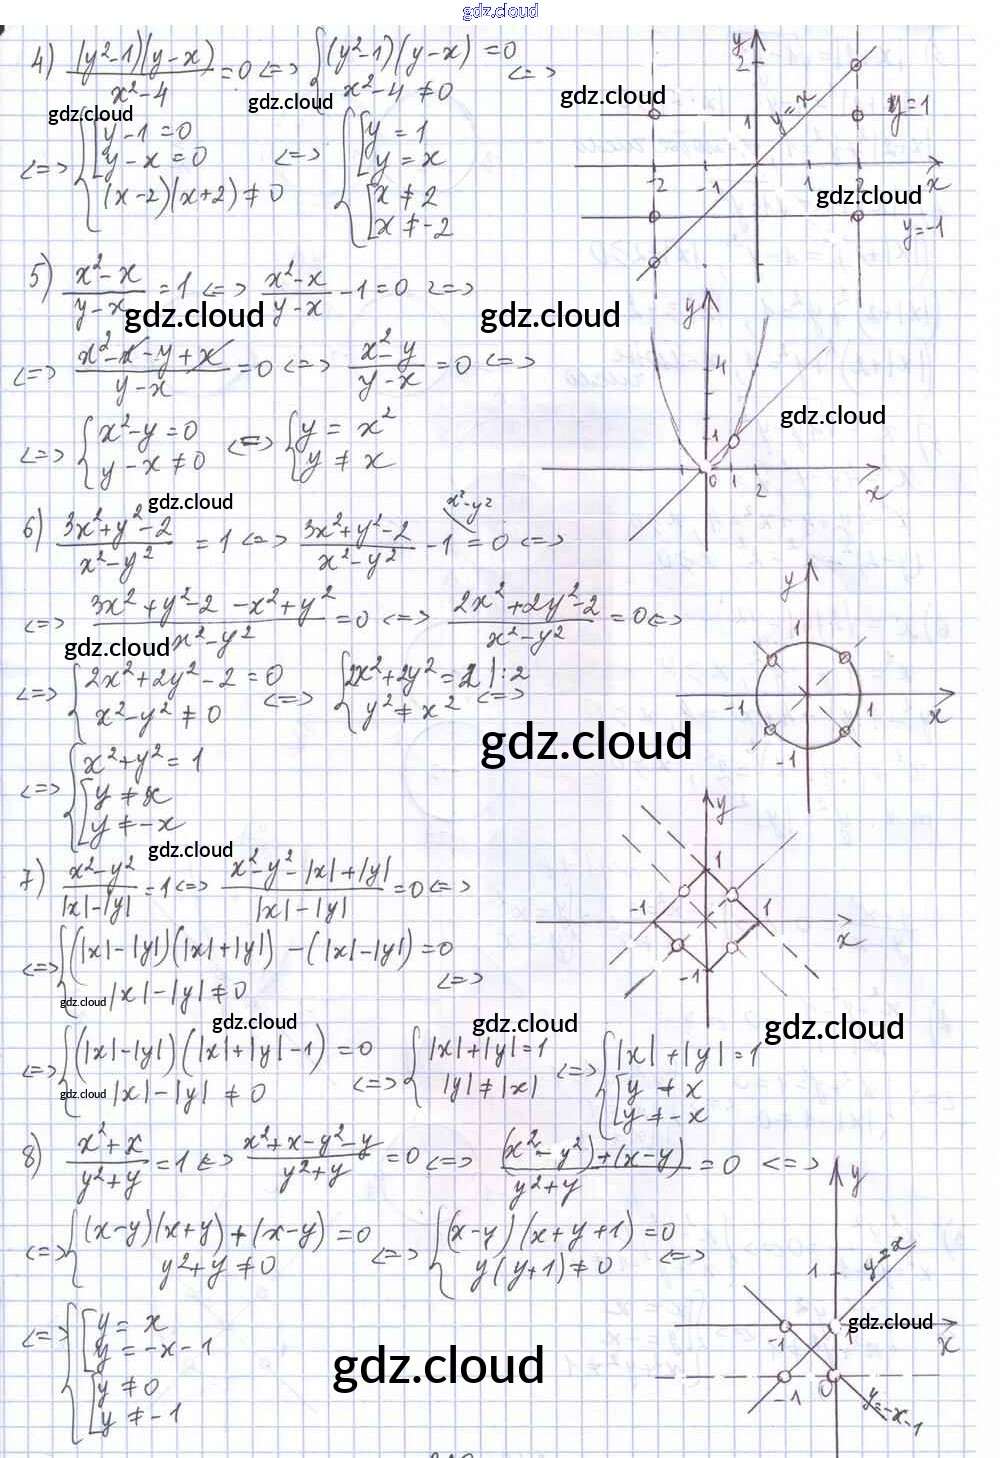 gdz.cloud
4) (y²-1)(y-x)/(x²-4) = 0 <=> { (y²-1)(y-x) = 0 ; x²-4 ≠ 0 <=>
gdz.cloud gdz.cloud gdz.cloud
<=> { [ y-1 = 0 ; y-x = 0 ; (x-2)(x+2) ≠ 0 <=> { [ y = 1 ; y = x ; [ x ≠ 2 ; x ≠ -2
y 2 y=x y=1 1
-2 -1 1 2 x
gdz.cloud
y=-1
5) (x²-x)/(y-x) = 1 <=> (x²-x)/(y-x) - 1 = 0 <=>
gdz.cloud gdz.cloud
<=> (x²-x-y+x)/(y-x) = 0 <=> (x²-y)/(y-x) = 0 <=>
<=> { x²-y = 0 ; y-x ≠ 0 <=> { y = x² ; y ≠ x
y 4 1 0 1 2 x
gdz.cloud
gdz.cloud
6) (3x²+y²-2)/(x²-y²) = 1 <=> (3x²+y²-2)/(x²-y²) - 1 = 0 <=>
x²-y²
<=> (3x²+y²-2-x²+y²)/(x²-y²) = 0 <=> (2x²+2y²-2)/(x²-y²) = 0 <=>
gdz.cloud
<=> { 2x²+2y²-2 = 0 ; x²-y² ≠ 0 <=> { 2x²+2y² = 2 |:2 ; y² ≠ x² <=>
y 1 -1 1 x -1
gdz.cloud
<=> { x²+y² = 1 ; [ y ≠ x ; y ≠ -x
gdz.cloud
7) (x²-y²)/(|x|-|y|) = 1 <=> (x²-y²-|x|+|y|)/(|x|-|y|) = 0 <=>
y 1 -1 1 x -1
<=> { (|x|-|y|)(|x|+|y|) - (|x|-|y|) = 0 ; |x|-|y| ≠ 0 <=>
gdz.cloud
gdz.cloud gdz.cloud gdz.cloud
<=> { (|x|-|y|)(|x|+|y|-1) = 0 ; |x|-|y| ≠ 0 <=> { |x|+|y| = 1 ; |y| ≠ |x| <=> { |x|+|y| = 1 ; [ y ≠ x ; y ≠ -x
gdz.cloud
8) (x²+x)/(y²+y) = 1 <=> (x²+x-y²-y)/(y²+y) = 0 <=> ((x²-y²)+(x-y))/(y²+y) = 0 <=>
<=> { (x-y)(x+y)+(x-y) = 0 ; y²+y ≠ 0 <=> { (x-y)(x+y+1) = 0 ; y(y+1) ≠ 0 <=>
<=> { [ y = x ; y = -x-1 ; [ y ≠ 0 ; y ≠ -1
y y=x 1 -1 1 x -1 0 y=-x-1
gdz.cloud
gdz.cloud